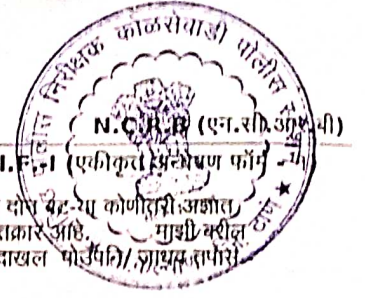 निरीक्षक कोळसेवाडी पोलीस
N.C.R.B (एन.सी.आर.बी)
I.F.-I (एकीकृत अन्वेषण फॉर्म -
कोणीतरी अज्ञात
तक्रार आहे. माझी वरील
दाखल पोउपनि/ जाधव तपास